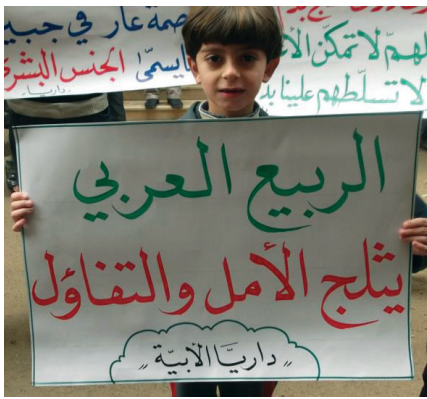 صمة عار في جبين
يسمّى الجنس البشري
داريا
لهم لا تمكّن الأ
لا تسلّطهم علينا بذ
الربيع العربي
يثلج الأمل والتفاؤل
„ داريّا الأبيّة „